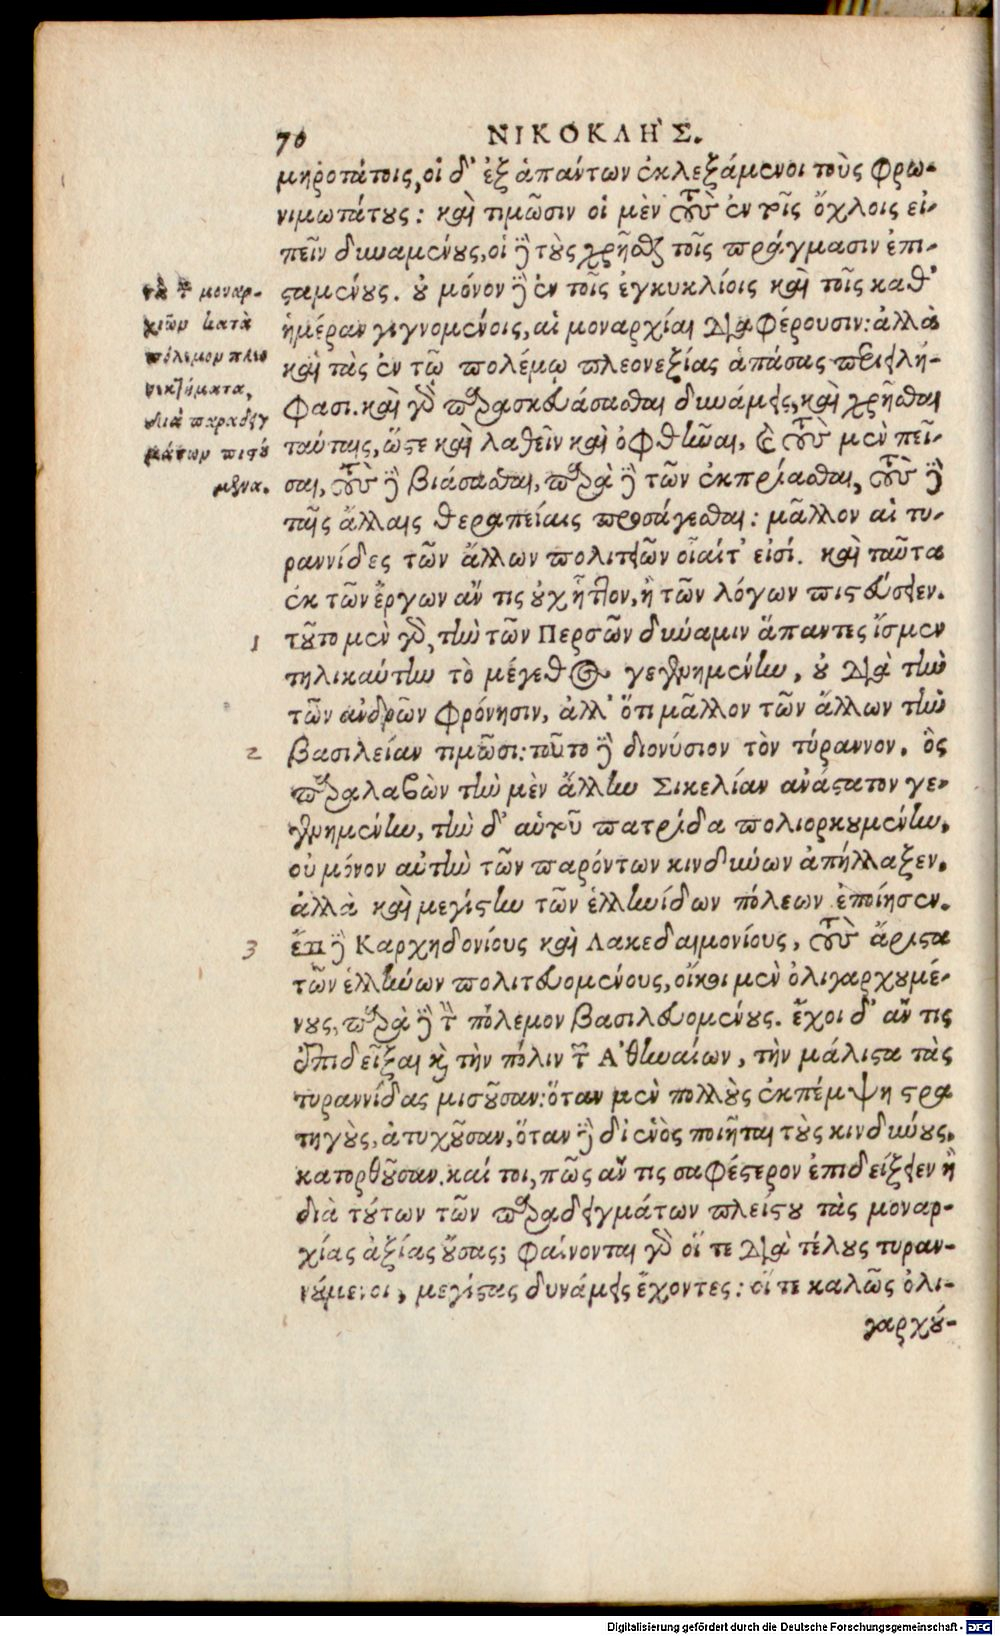 70
ΝΙΚΟΚΛΗ῀Σ.
μηροτάτοις, οἱ δ' ἐξ ἁπάντων ἐκλεξάμενοι τοὺς φρω-
νιμωτάτους: καὶ τιμῶσιν οἱ μὲν τοὺς ἐν τοῖς ὄχλοις εἰ-
πεῖν δυναμένους, οἱ δὲ τοὺς χρῆσθαι τοῖς πράγμασιν ἐπι-
σταμένους. οὐ μόνον δὲ ἐν τοῖς ἐγκυκλίοις καὶ τοῖς καθ'
ἡμέραν γιγνομένοις, αἱ μοναρχίαι διαφέρουσιν: ἀλλὰ
καὶ τὰς ἐν τῷ πολέμῳ πλεονεξίας ἁπάσας περιειλή-
φασι. καὶ γὰρ παρασκευάσασθαι δυνάμεις, καὶ χρῆσθαι
ταύταις, ὥστε καὶ λαθεῖν καὶ ὀφθῆναι, καὶ τοὺς μὲν πεῖ-
σαι, τοὺς δὲ βιάσασθαι, παρὰ δὲ τῶν ἐκπρίασθαι, τοὺς δὲ
ταῖς ἄλλαις θεραπείαις προσάγεσθαι: μᾶλλον αἱ τυ-
ραννίδες τῶν ἄλλων πολιτειῶν οἷαίτ' εἰσί. καὶ ταῦτα
ἐκ τῶν ἔργων ἄν τις οὐχ ἧττον, ἢ τῶν λόγων πιστεύσειεν.
τοῦτο μὲν γὰρ, τὴν τῶν Περσῶν δύναμιν ἅπαντες ἴσμεν
τηλικαύτην τὸ μέγεθος γεγενημένην, οὐ διὰ τὴν
τῶν ἀνδρῶν φρόνησιν, ἀλλ' ὅτι μᾶλλον τῶν ἄλλων τὴν
βασιλείαν τιμῶσι: τοῦτο δὲ διονύσιον τὸν τύραννον. ὃς
παραλαβὼν τὴν μὲν ἄλλην Σικελίαν ἀνάστατον γε-
γενημένην, τὴν δ' αὑτοῦ πατρίδα πολιορκουμένην.
οὐ μόνον αὐτὴν τῶν παρόντων κινδύνων ἀπήλλαξεν.
ἀλλὰ καὶ μεγίστην τῶν ἑλληνίδων πόλεων ἐποίησεν.
ἔτι δὲ Καρχηδονίους καὶ Λακεδαιμονίους, τοὺς ἄριστα
τῶν ἑλλήνων πολιτευομένους, οἴκοι μὲν ὀλιγαρχουμέ-
νους, παρὰ δὲ τὸν πόλεμον βασιλευομένους. ἔχοι δ' ἄν τις
ἐπιδεῖξαι καὶ τὴν πόλιν τῶν Ἀθηναίων, τὴν μάλιστα τὰς
τυραννίδας μισοῦσαν: ὅταν μὲν πολλοὺς ἐκπέμψῃ στρα
τηγοὺς, ἀτυχοῦσαν, ὅταν δὲ δι ἑνὸς ποιῆται τοὺς κινδύνους.
κατορθοῦσαν. καί τοι, πῶς ἄν τις σαφέστερον ἐπιδείξειεν ἢ
διὰ τούτων τῶν παραδειγμάτων πλείστου τὰς μοναρ-
χίας ἀξίας οὔσας; φαίνονται γὰρ οἵ τε διὰ τέλους τυραν-
νούμενοι, μεγίστας δυνάμεις ἔχοντες: οἵ τε καλῶς ὀλι-
γαρχού-
τὰ τῶν μοναρ-
χιῶν κατὰ
πόλεμον πλεο
νεκτήματα,
διὰ παραδειγ
μάτων πιστού
μενα.
1
2
3
Digitalisierung gefördert durch die Deutsche Forschungsgemeinschaft - DFG